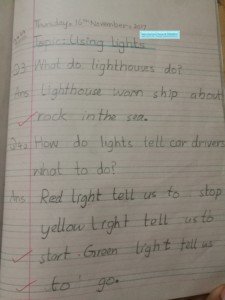 Thursday, 16th November, 2017
Topic: Using lights
Q3 What do lighthouses do?
Ans Lighthouse warn ship about
rock in the sea.
How do lights tell car drivers
what to do?
Ans Red light tell us to stop
yellow light tell us to
start. Green light tell us
to go.